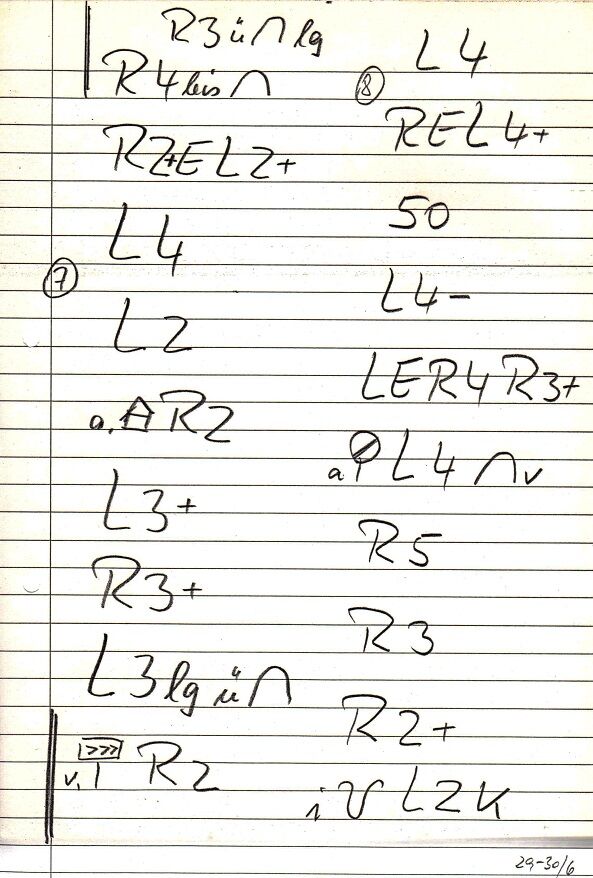 R3 ü ∩ lg
R4 bis ∩
R2+EL2+
L4
⑦
L2
a. R2
L3+
R3+
L3 lg ü ∩
v. >>> R2
L4
⑧
REL4+
50
L4-
LER4R3+
a L4 ∩ v
R5
R3
R2+
i L2K
29-30/6